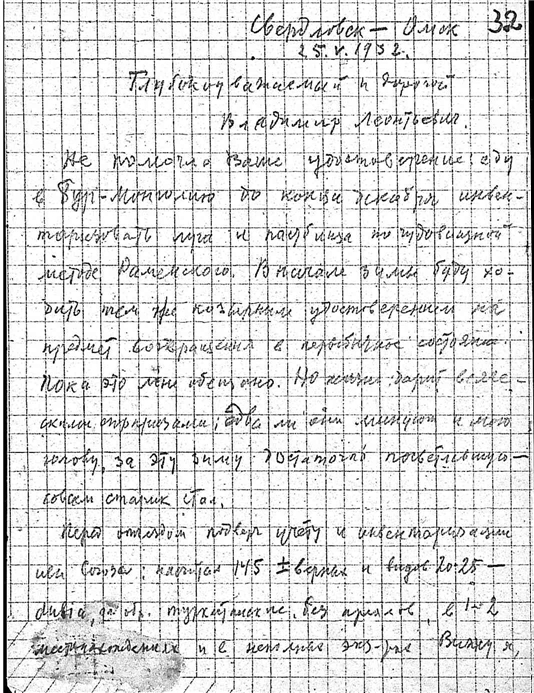 32
Свердловск — Омск
25.V.1932.
Глубокоуважаемый и дорогой
Владимир Леонтьевич.
Не помогло Ваше удостоверение: еду
в Бур-Монголию до конца декабря инвен-
таризовать луга и пастбища по чудовищной
методе Раменского. В начале зимы буду хо-
дить тем же козырным удостоверением на
предмет возвращения в первобычное состояние.
Пока это мне обещано. Но жизнь дарит всяче-
скими сюрпризами; едва ли они минуют и мою
голову, за эту зиму достаточно посветлевшую —
совсем старик стал.
Перед отъездом подверг учету и инвентаризации
ивы Союза: насчитал 145 ± верных и видов 20-25 —
dubia, туркестанские, без ареалов, в 1-2
местонахождениях и в неполных экз-рах. Вижу я,